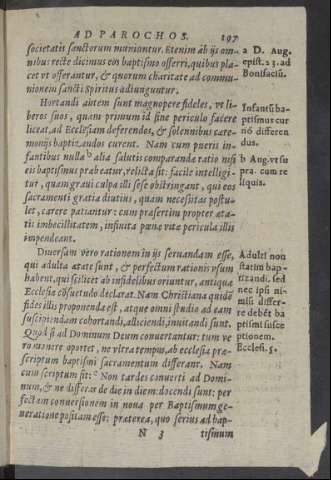 AD PAROCHOS. 197
societatis sanctorum muniontur. Etenim ab ijs om-
nibus recte dicimus eos baptismo offerri, quibus pla-
cet vt offerantur, & quorum charitate ad commu-
nionem sancti Spiritus adiunguntur.
Hortandi autem sunt magnopere fideles, vt li-
beros suos, quam primum id sine periculo facere
liceat, ad Ecclesiam deferendos, & solennibus caere-
monijs baptizandos curent. Nam cum pueris in-
fantibus nulla b alia salutis comparandae ratio nisi
eis baptismus praebeatur, relicta sit: facile intelligi-
tur, quam graui culpa illi sese obstringant, qui eos
sacramenti gratia diutius, quam necessitas postu-
let, carere patiantur: cum praesertim propter aeta-
tis imbecillitatem, infinita pene vitae pericula illis
impendeant.
Diuersam vero rationem in ijs seruandam esse,
qui adulta aetate sunt, & perfectum rationis vsum
habent, qui scilicet ab infidelibus oriuntur, antiquae
Ecclesiae cōsuetudo declarat. Nam Christiana quidē
fides illis proponenda est, atque omni studio ad eam
suscipiendam cohortandi, alliciendi, inuitandi sunt.
Quod si ad Dominum Deum conuertantur: tum ve
ro monere oportet, ne vltra tempus, ab ecclesia prae-
scriptum baptismi sacramentum differant. Nam
cum scriptum sit: c Non tardes conuerti ad Domi-
num, & ne differas de die in diem: docendi sunt: per
fectam conuersionem in noua per Baptismum ge-
neratione positam esse: praeterea, quo serius ad bap-
N 3 tismum
a D. Aug.
epist. 23. ad
Bonifaciū.
Infantū ba-
ptismus cur
nō differen
dus.
b Aug. vt su
pra. cum re
liquis.
Adulti non
statim bap-
tizandi. sed
nec ipsi ni-
mis differ-
re debēt ba
ptismi susce
ptionem.
Eccles. 5.